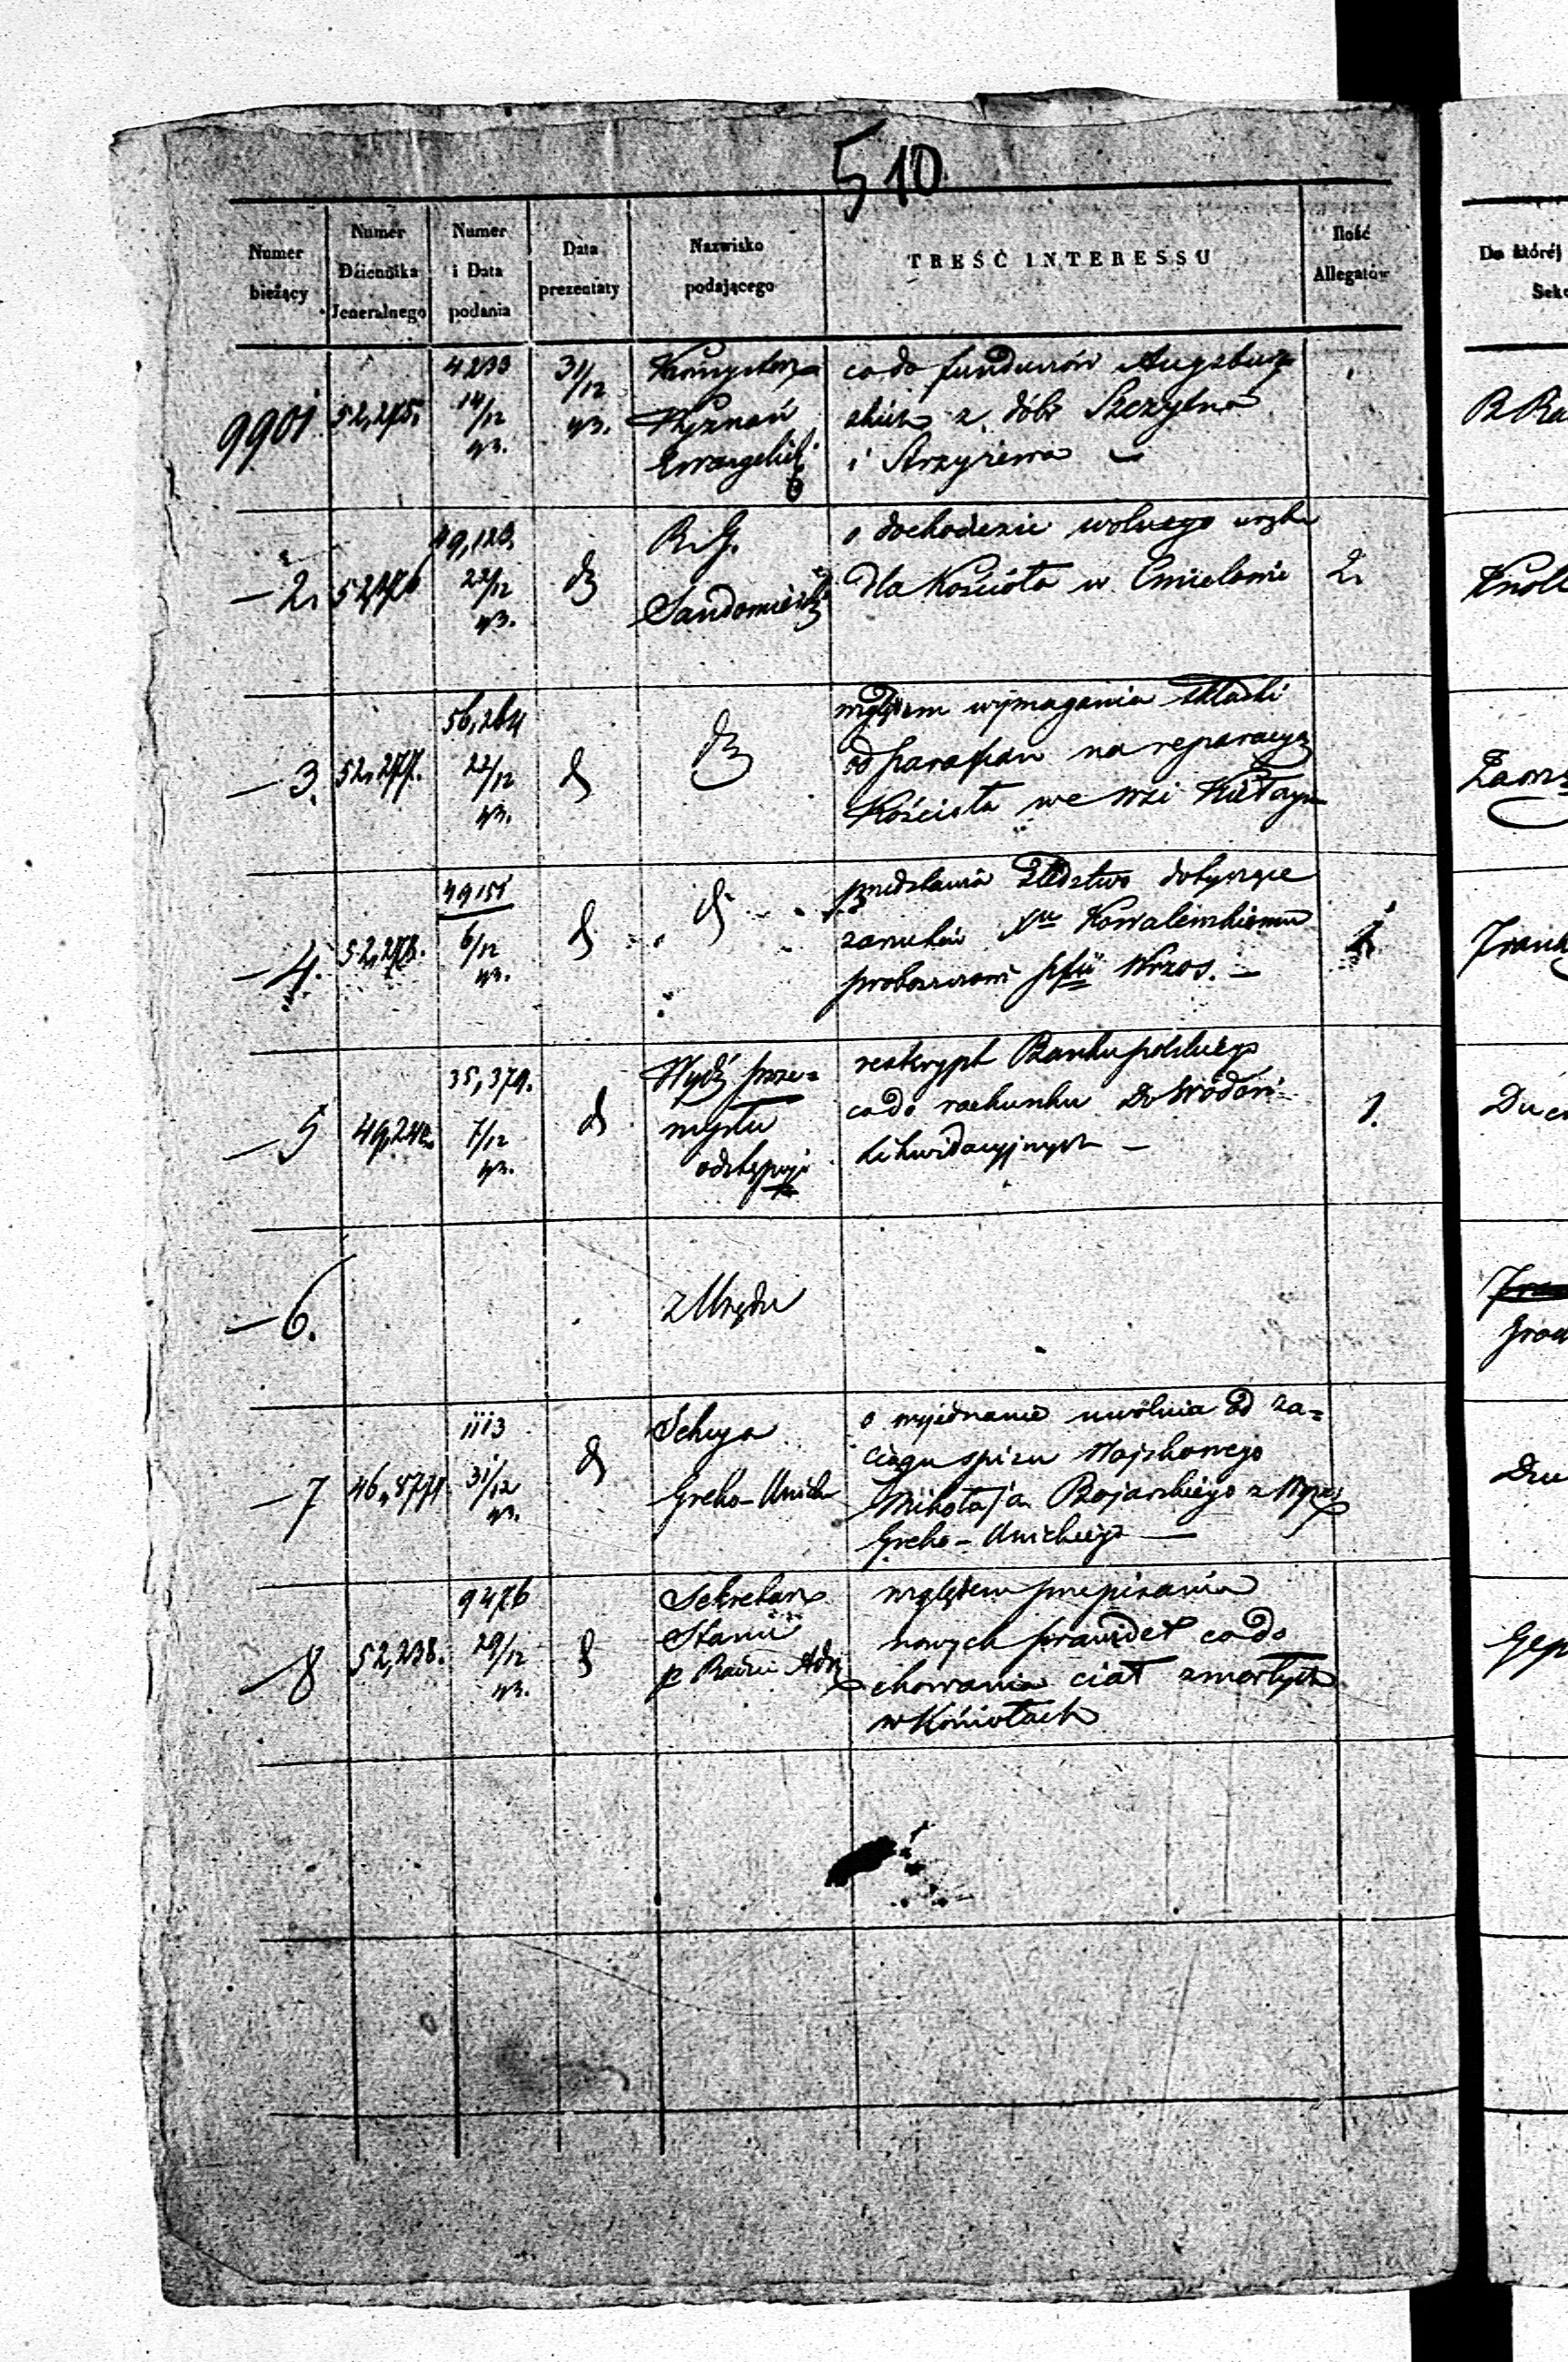 510
Numer bieżący
Numer Dziennika Jeneralnego
Numer i Data podania
Data prezentaty
Nazwisko podającego
TREŚĆ INTERESSU
Ilość Allegatów
Do której
9901. 52,275. 4233 14/12 43. 31/12 43.
Wyznań
Ewangelick
co do funduszów Augsburg
skich z dóbr Szczytno
i Strzyżewa —
— 2. 52,276 49,123. 22/12 43. do
R. G.
Sandomierski
o dochodzenie wolnego
dla Kościoła w Cmielowie
2.
— 3. 52,277. 56,264 22/12 43. do
do
względem wymagania składki
od parafian na reparacyą
Kościoła we wsi
— 4. 52,278. 49151 6/12 43. do
do
przedstawia śledztwo dotyczące
zarzutów Xu Kowalewskiemu
proboszczowi pfii Wrzos. —
— 5 49,242. 35,379. 7/12 43. do
Wydz prze=
mysłu
odstępuje
reskrypt Banku polskiego
co do rachunku Dowodów
likwidacyjnych —
1.
— 6.
z Urzędu
— 7 46, 1113 31/12 43. do
Greko-Unick
o wyjednanie uwolnia od za=
ciągu spisu Wojskowego
Mikołaja Bojarskiego z Wyzn
Greko-Unickiego —
— 8 52,238. 9476 29/12 43. do
Sekretarz
Stanu
p Radzie Adm
względem przepisania
nowych prawideł co do
chowania ciał zmarłych
w Kościołach